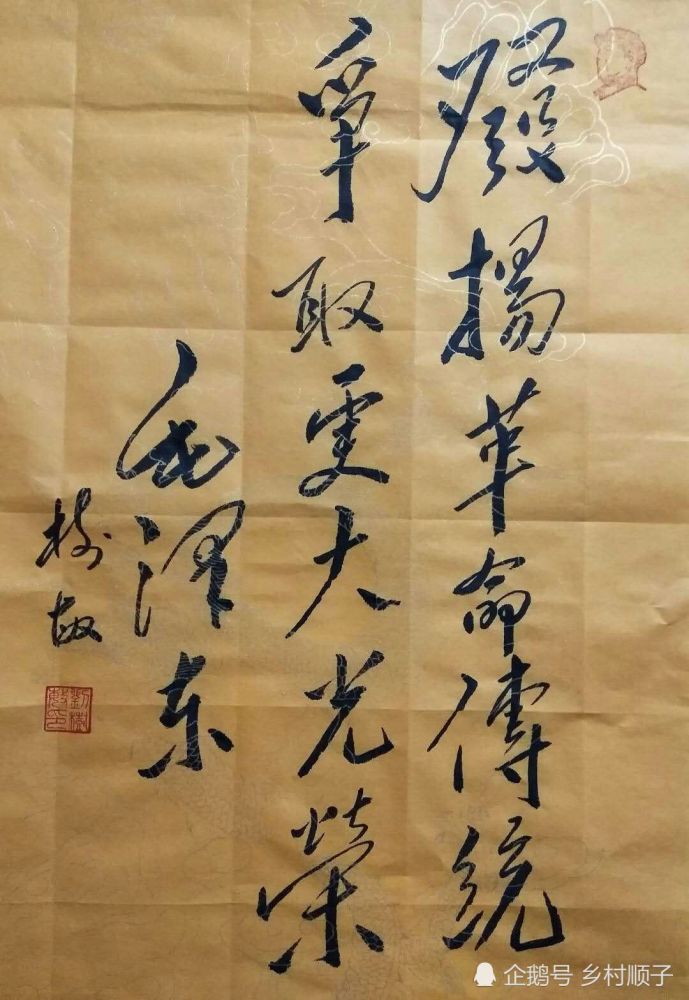 發揚革命傳統
爭取更大光榮
毛泽东
树
企鹅号 乡村顺子